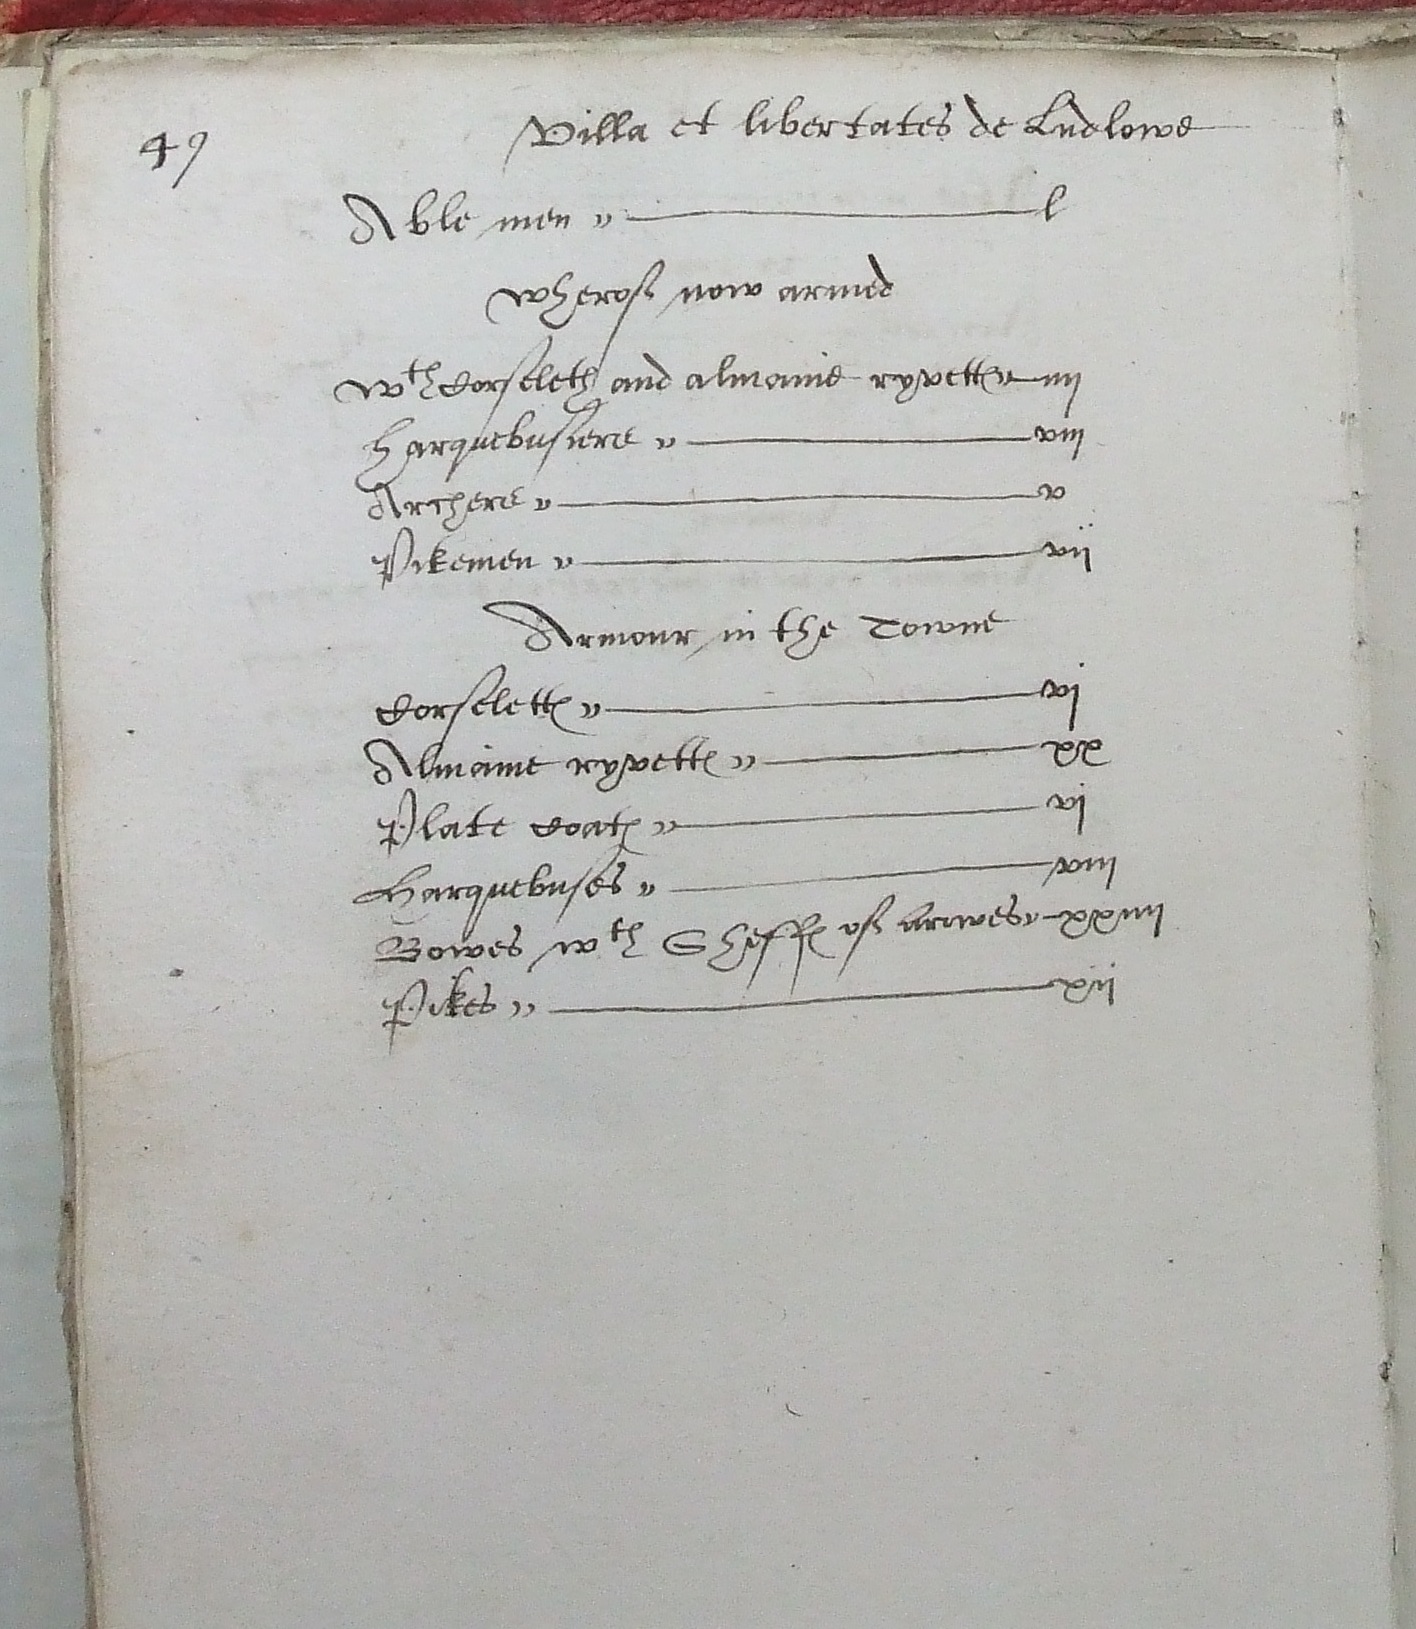 49
Villa et libertates de Ludlowe
Able men l
wherof now armed
wth Corseletes and almaine ryvettes iiij
Harquebusiers viij
Archers v
Pikemen vij
Armour in the Towne
Corselettes vj
Almaine ryvettes xx
Plate Coates vj
Harquebuses viij
Bowes wth Sheffes of arrwes xxiiij
Pikes xij